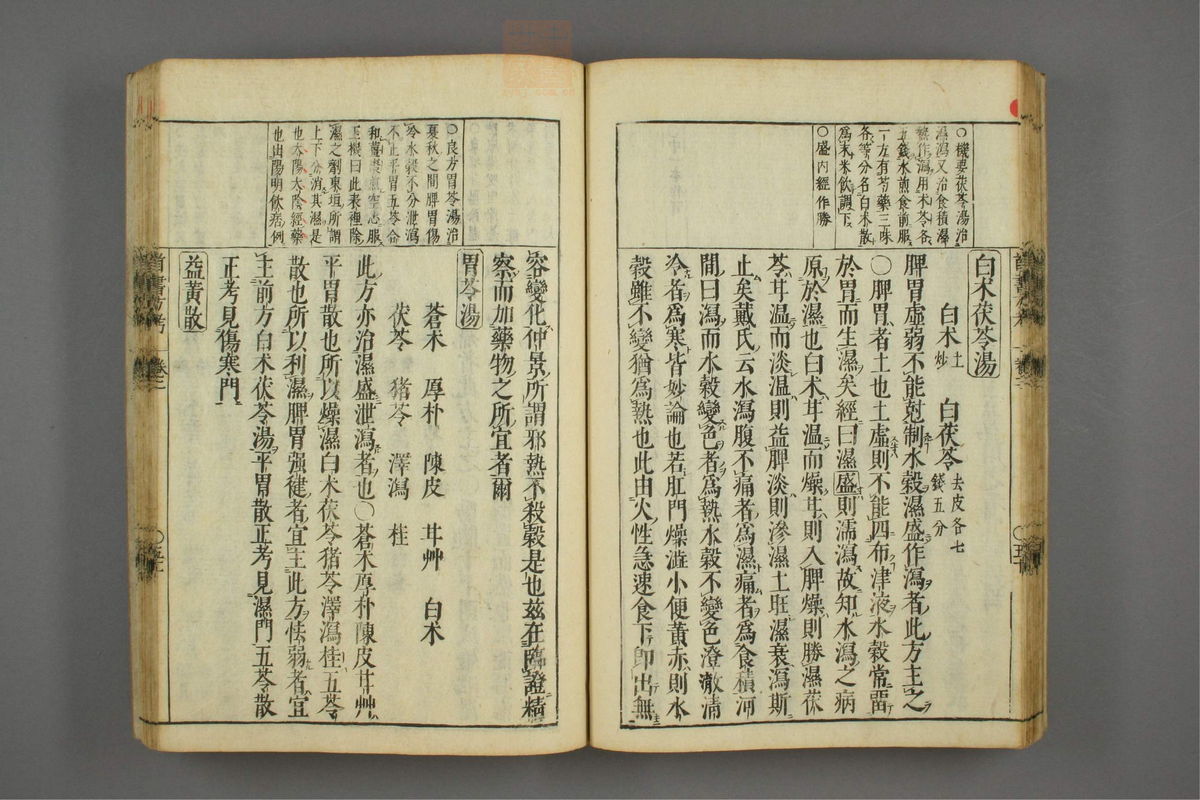 ○機要茯苓湯治
濕瀉又治食積濕
熱作瀉用朮苓各
五錢水煎食前服
一方有芍藥三味
各等分名白朮散
為末米飲調下
○盛內經作勝
白朮茯苓湯
白朮土炒 白茯苓去皮各七錢五分
脾胃虛弱不能尅制水穀濕盛作瀉者此方主之
○脾胃者土也土虛則不能四布津液水穀常畱
於胃而生濕矣經曰濕盛則濡瀉故知水瀉之病
原於濕也白朮甘溫而燥甘則入脾燥則勝濕茯
苓甘溫而淡溫則益脾淡則滲濕土旺濕衰瀉斯
止矣戴氏云水瀉腹不痛者為濕痛者為食積河
間曰瀉而水穀變色者為熱水穀不變色澄澈清
冷者為寒皆妙論也若肛門燥澁小便黃赤則水
穀雖不變猶為熱也此由火性急速食下卽出無
○良方胃苓湯治
夏秋之間脾胃傷
冷水穀不分泄瀉
不止平胃五苓合
和薑棗煎空心服
玉機曰此表裡除
濕之劑東垣所謂
上下分消其濕是
也太陽太陰經藥
也出陽明飲病例
容變化仲景所謂邪熱不殺穀是也茲在臨證精
察而加藥物之所宜者爾
胃苓湯
蒼朮 厚朴 陳皮 甘艸 白朮
茯苓 豬苓 澤瀉 桂
此方亦治濕盛泄瀉者也○蒼朮厚朴陳皮甘艸
平胃散也所以燥濕白朮茯苓豬苓澤瀉桂五苓
散也所以利濕脾胃强健者宜主此方怯弱者宜
主前方白朮茯苓湯平胃散正考見濕門五苓散
正考見傷寒門
益黃散